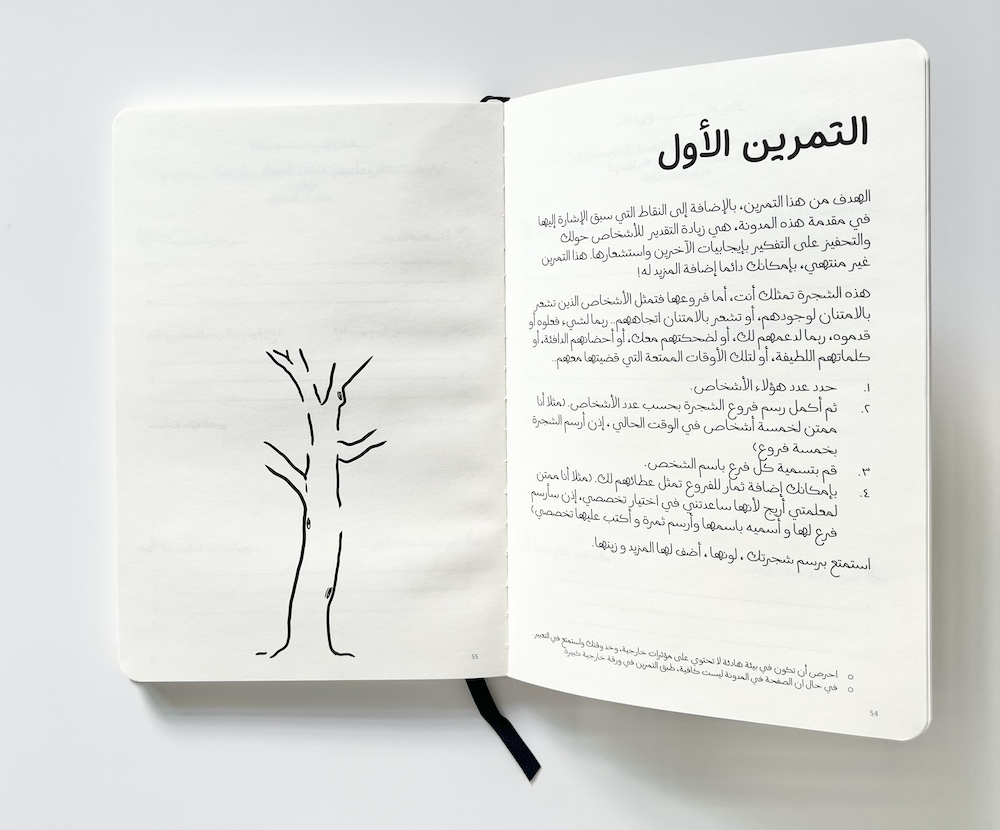 التمرين الأول
الهدف من هذا التمرين، بالإضافة إلى النقاط التي سبق الإشارة إليها
في مقدمة هذه المدونة، هي زيادة التقدير للأشخاص حولك
والتحفيز على التفكير بإيجابيات الآخرين واستشعارها. هذا التمرين
غير منتهي، بإمكانك دائما إضافة المزيد له!
هذه الشجرة تمثلك أنت، أما فروعها فتمثل الأشخاص الذين تشعر
بالامتنان لوجودهم، أو تشعر بالامتنان اتجاههم.. ربما لشيء فعلوه أو
قدموه، ربما لدعمهم لك، أو لضحكتهم معك، أو أحضانهم الدافئة، أو
كلماتهم اللطيفة، أو لتلك الأوقات الممتعة التي قضيتها معهم..
١. حدد عدد هؤلاء الأشخاص.
٢. ثم أكمل رسم فروع الشجرة بحسب عدد الأشخاص. (مثلا أنا
ممتن لخمسة أشخاص في الوقت الحالي، إذن أرسم الشجرة
بخمسة فروع)
٣. قم بتسمية كل فرع باسم الشخص.
٤. بإمكانك إضافة ثمار للفروع تمثل عطائهم لك. (مثلا أنا ممتن
لمعلمتي أريج لأنها ساعدتني في اختيار تخصصي، إذن سأرسم
فرع لها و أسميه باسمها وأرسم ثمرة و أكتب عليها تخصصي)
استمتع برسم شجرتك، لونها، أضف لها المزيد و زينها.
○ احرص أن تكون في بيئة هادئة لا تحتوي على مؤثرات خارجية، وخذ وقتك واستمتع في التعبير
○ في حال ان الصفحة في المدونة ليست كافية، طبق التمرين في ورقة خارجية كبيرة.
54
55